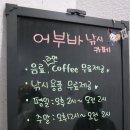 어부바 낚시
카페
음료, Coffee 무료제공
낚시용품 무료제공
평일: 오후 2시~오전 2시
주말: 오후 1시~오전